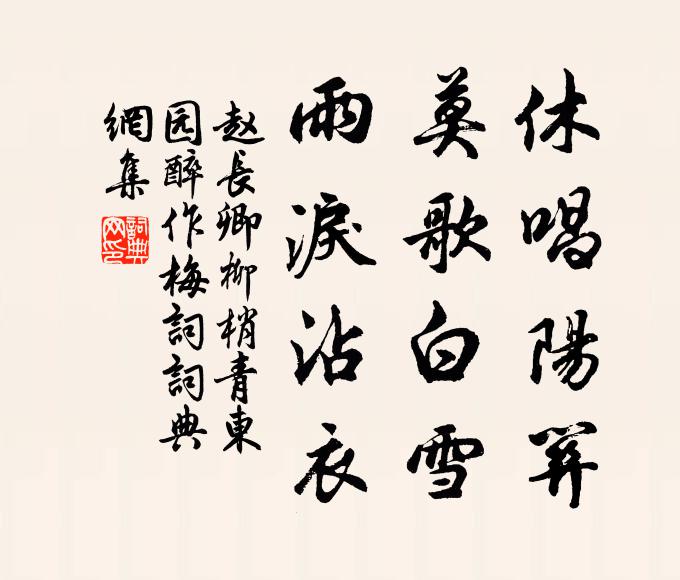 休唱陽關
莫歌白雪
雨淚沾衣
赵長卿柳梢青東
园醉作梅詞詞典
網集
詞典
网印